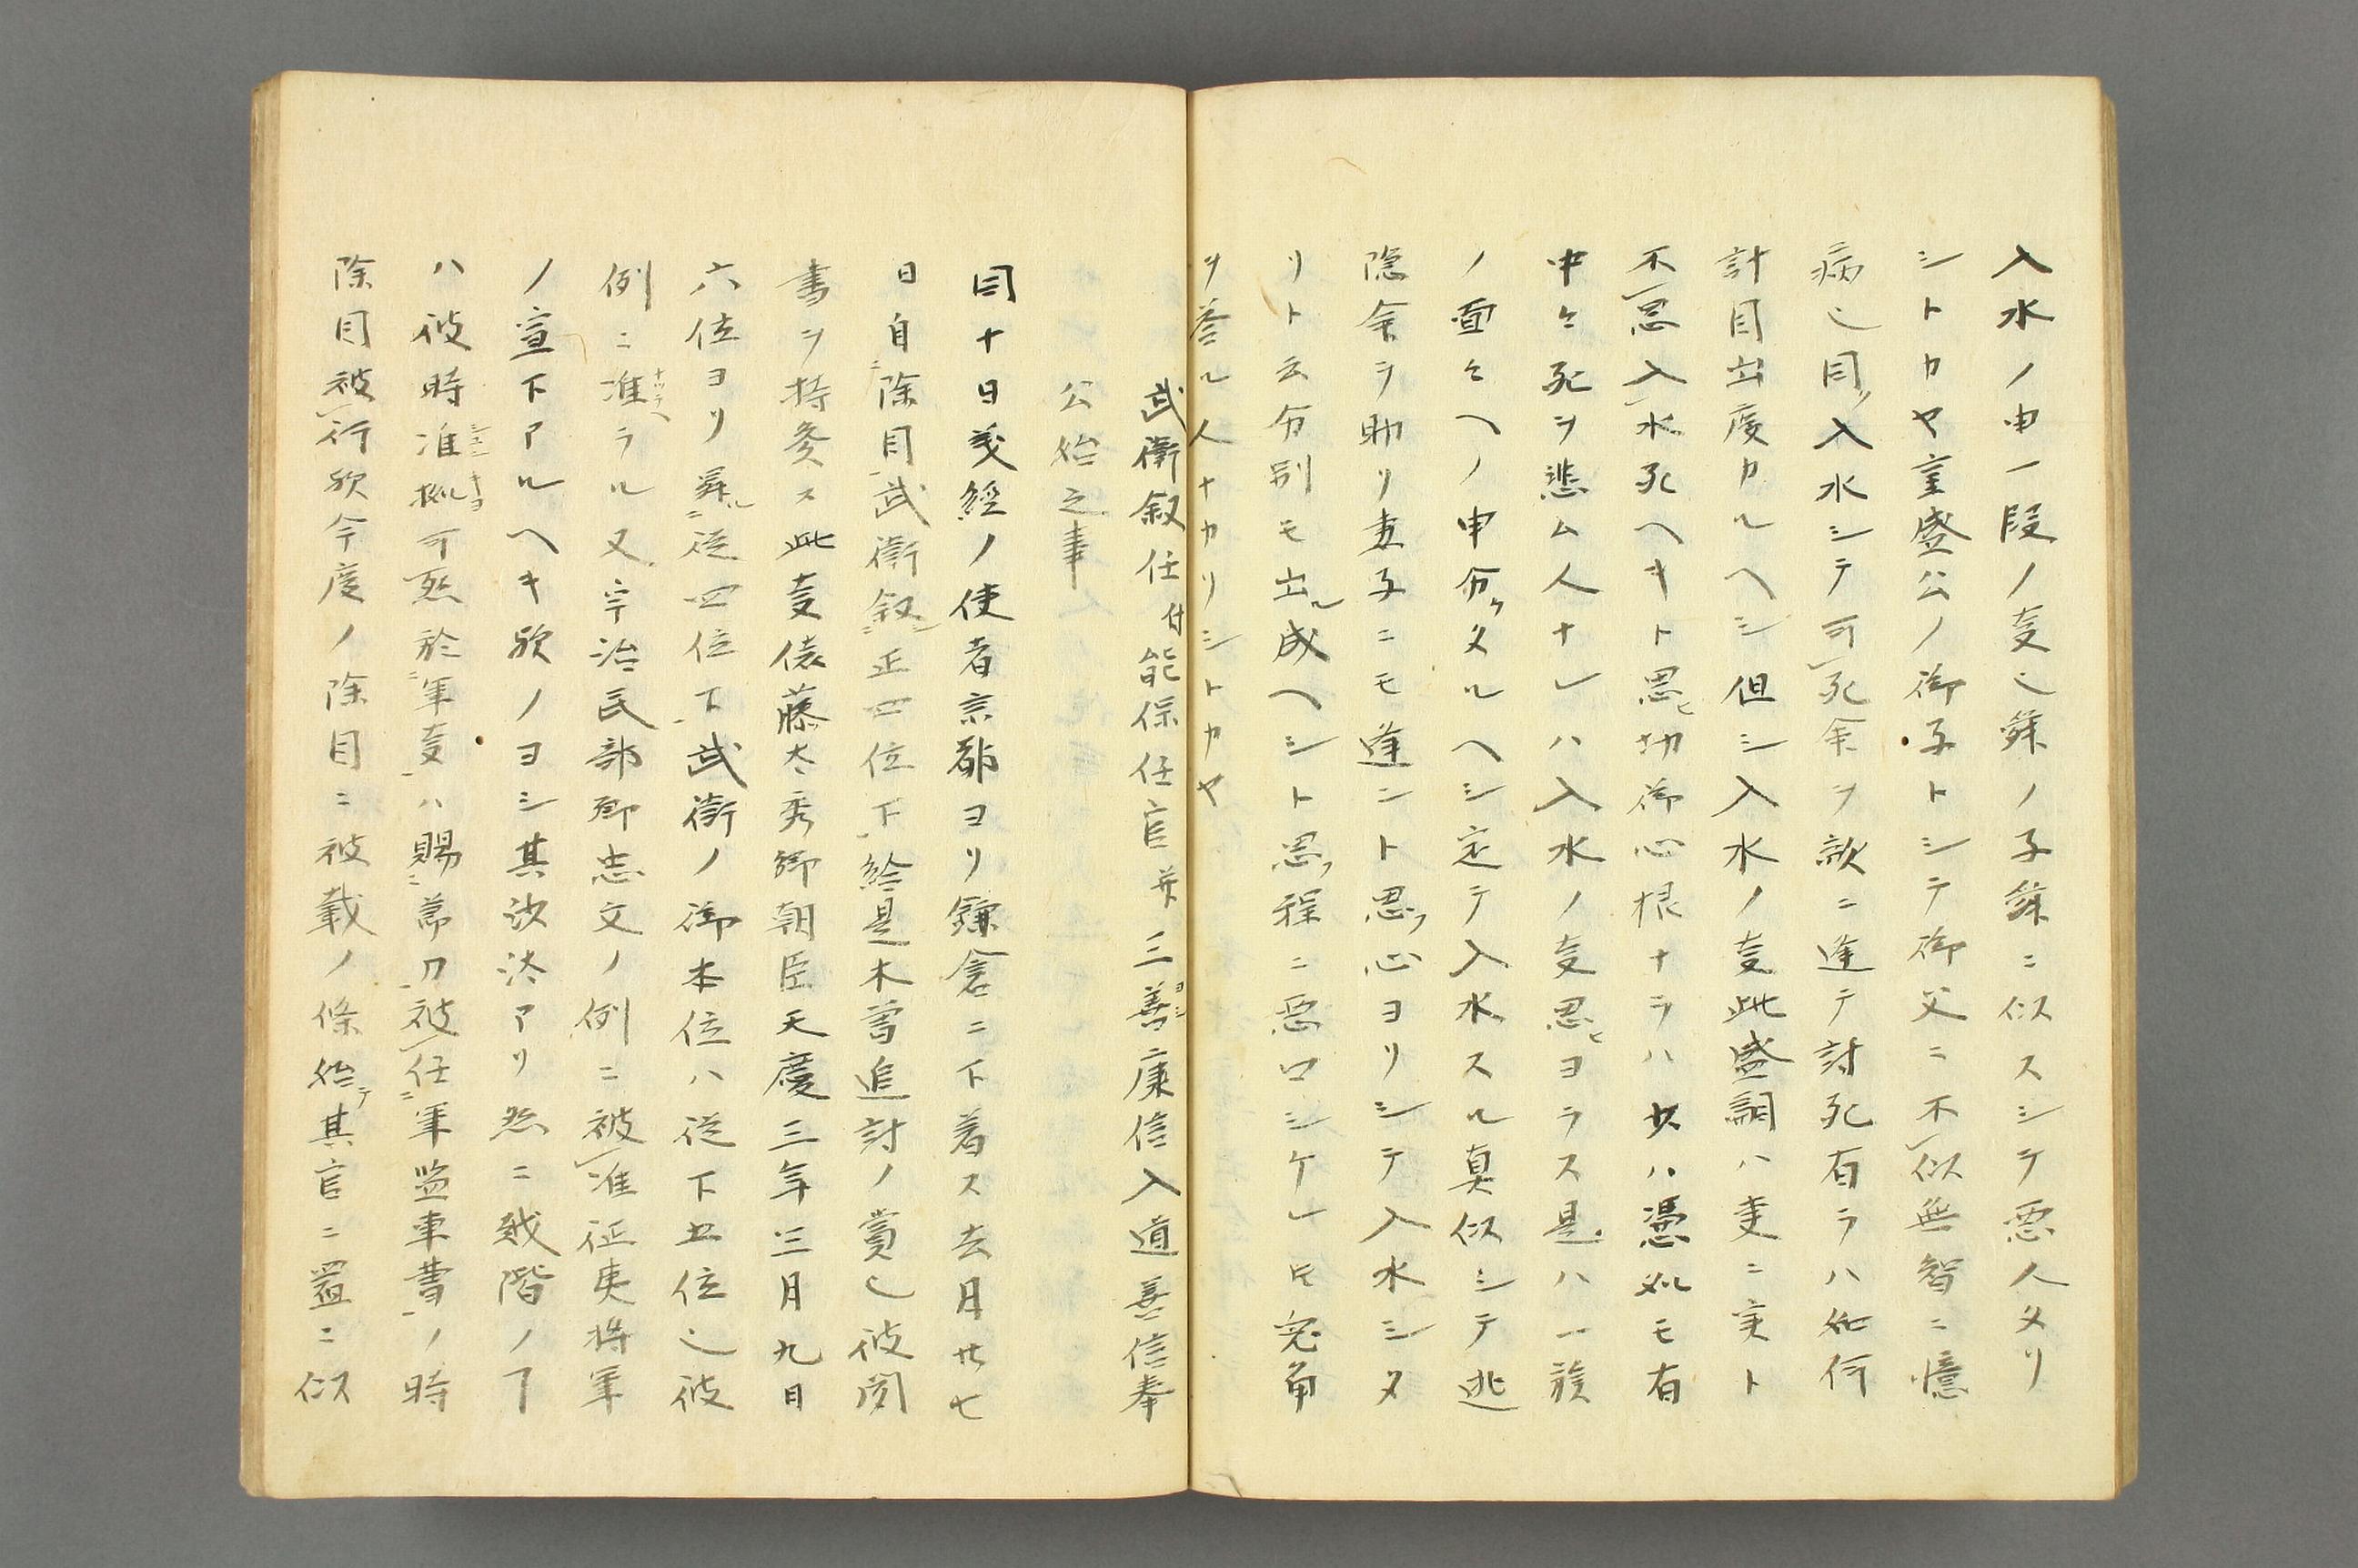 入水ノ申一段ノ支也錸ノ子錸ニ似スシテ悪人タリ
シトカヤ重盛公ノ御子トシテ御父ニ不似無智ニ憶
病也同ク入水シテ可死余ヲ敵ニ逢テ討死有ラハ如何
計目出度カルヘシ但シ入水ノ支此盛嗣ハ更ニ実ト
不思入水死ヘキト思ヒ切御心根ナラハ少ハ憑処モ有
中々死ヲ悲ム人ナレハ入水ノ支思ヒヨラス是ハ一族
ノ面々ヘノ申分ケタルヘシ定テ入水スル真似シテ逃
隠余ヲ助リ妻子ニモ逢ント思フ心ヨリシテ入水シタ
リト云分別モ出ル成ヘシト思フ程ニ悪口シケレ𪜈兎角
ヲ答ル人ナカリシトカヤ
武衛叙任付能保任官并三善康信入道善信奉
公始之事
同十日義経ノ使者京都ヨリ鎌倉ニ下着ス去月廿七
日自除目武衛叙正四位下給是木曽追討ノ賞也彼聞
書ヲ持参ス此支俵藤太秀郷朝臣天慶三年三月九日
六位ヨリ昇ル従四位下武衛ノ御本位ハ従下五位也彼
例ニ准ラル又宇治民部卿忠文ノ例ニ被准征夷将軍
ノ宣下アルヘキ歟ノヨシ其沙汰アリ然ニ越階ノヿ
ハ彼時准拠可然於軍支ハ賜節刀被任軍監軍曹ノ時
除目被行歟今度ノ除目ニ被載ノ條始テ其官ニ置ニ似